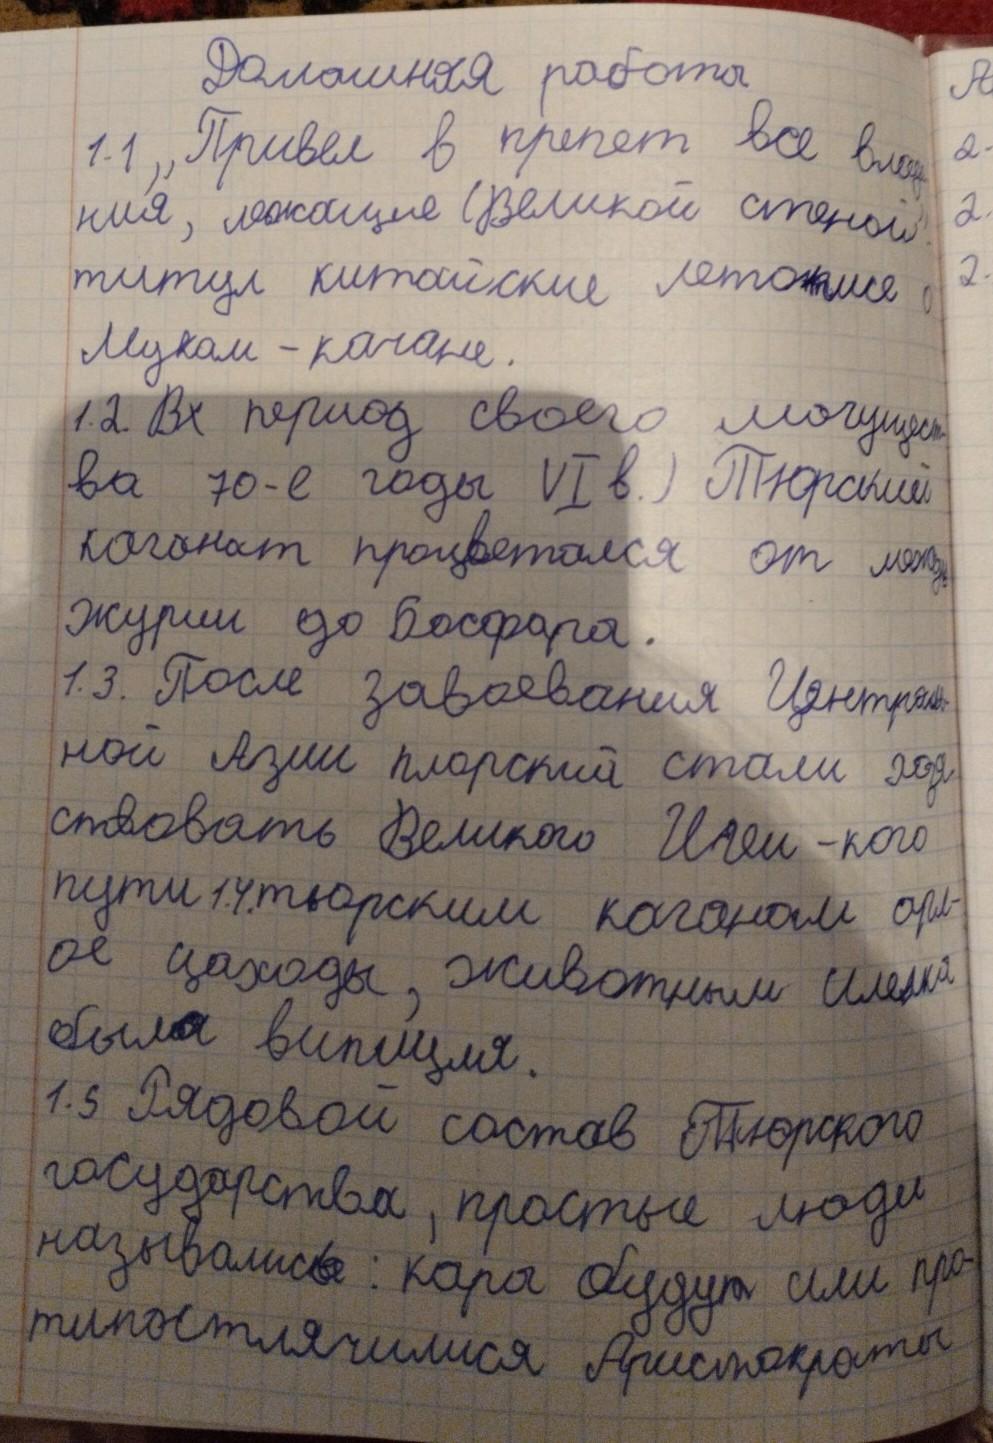 Домашняя работы
1.1 ,,Привел в препет все владе
ния, лежащие (Великой стеной".
титул китайские летописе о
Мукам - качане.
1.2. Вх период своего могущест-
ва 70-е годы VI в.) Тюрский
каганат процветался от
журии до Босфара.
1.3. После завоевания Централь-
ной Азии плорский стали
ствовать Великого -кого
пути 1.4. тьюрским каганам
ое цаходы, животным
была
1.5 Рядовой состав Тюрского
государства, простые люди
назывались: кара будун или про-
типостлячилися Аристократы
А
2-
2.
2.